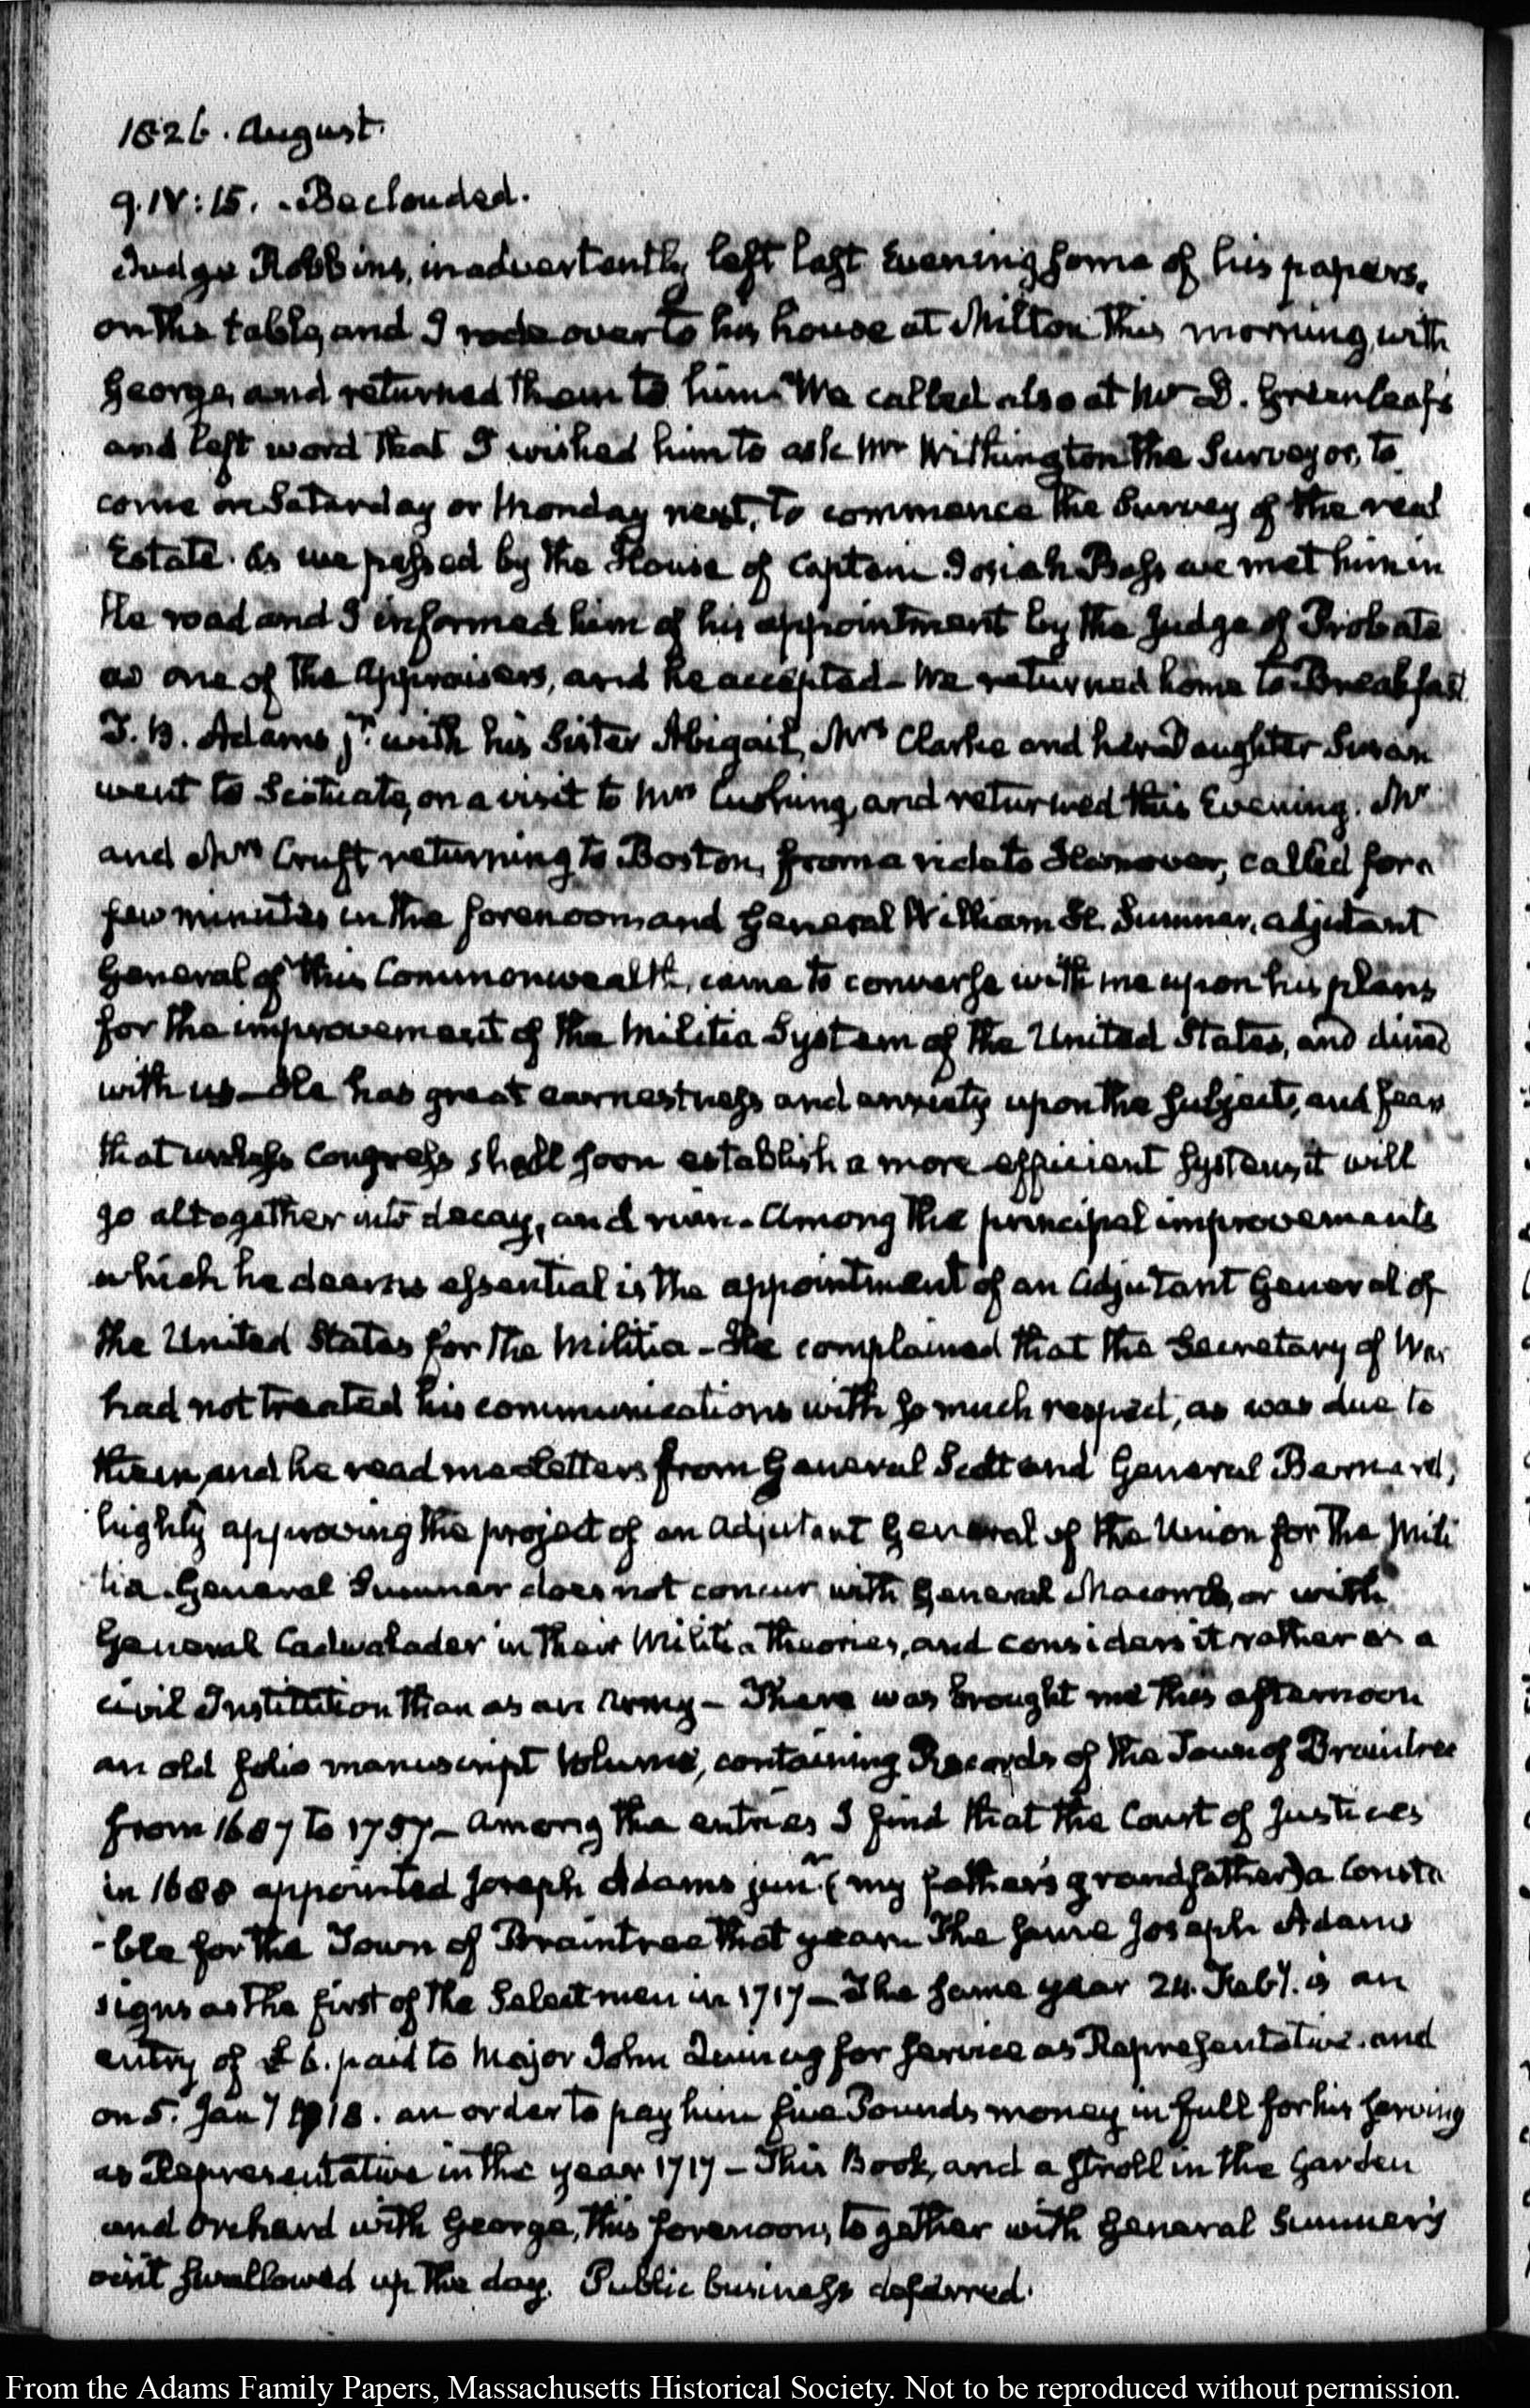 1826. August.
9. IV: 15. Beclouded.
Judge Robbins, inadvertently left last Evening some of his papers,
on the table, and I rode over to his house at Milton this morning, with
George, and returned them to him. We called also at Mr D. Greenleaf's
and left word that I wished him to ask Mr Withington the Surveyor, to
come on Saturday or Monday next, to commence the Survey of the real
Estate. As we passed by the House of Captain Josiah Bass we met him in
the road and I informed him of his appointment by the Judge of Probate
as one of the Appraisers, and he accepted— We returned home to Breakfast
T. B. Adams jr. with his Sister Abigail, Mrs Clarke and her Daughter Susan
went to Scituate, on a visit to Mrs Cushing, and returned this Evening. Mr
and Mrs Cruft, returning to Boston, from a ride to Hanover, called for a
few minutes in the forenoon, and General William H. Sumner, adjutant
General of this Commonwealth, came to converse with me upon his plans
for the improvement of the Militia System of the United States, and dined
with us— He has great earnestness and anxiety upon the subject, and fears
that unless Congress shall soon establish a more efficient system, it will
go altogether into decay, and ruin— Among the principal improvements
which he deems essential is the appointment of an Adjutant General of
the United States for the Militia— He complained that the Secretary of War
had not treated his communications with so much respect, as was due to
them, and he read me Letters from General Scott and General Bernard,
highly approving the project of an Adjutant General of the Union for the Mili
tia. General Sumner does not concur with General Macomb, or with
General Cadwalader in their Militia theories, and considers it rather as a
civil Institution than as an Army— There was brought me this afternoon
an old folio manuscript Volume, containing Records of the Town of Braintree
from 1687 to 1757— Among the entries I find that the Court of Justices
in 1688 appointed Joseph Adams junr. (my father's grandfather) a Consta
-ble for the Town of Braintree that year. The same Joseph Adams
signs as the first of the Selectmen in 1717— The same year 24. Feby. is an
entry of £6. paid to Major John Quincy for service as Representative. and
on 5. Jany 1718. an order to pay him five Pounds money in full for his serving
as Representative in the year 1717— This Book, and a stroll in the Garden
and Orchard with George, this forenoon, together with General Sumner's
visit swallowed up the day. Public business deferred.
From the Adams Family Papers, Massachusetts Historical Society. Not to be reproduced without permission.